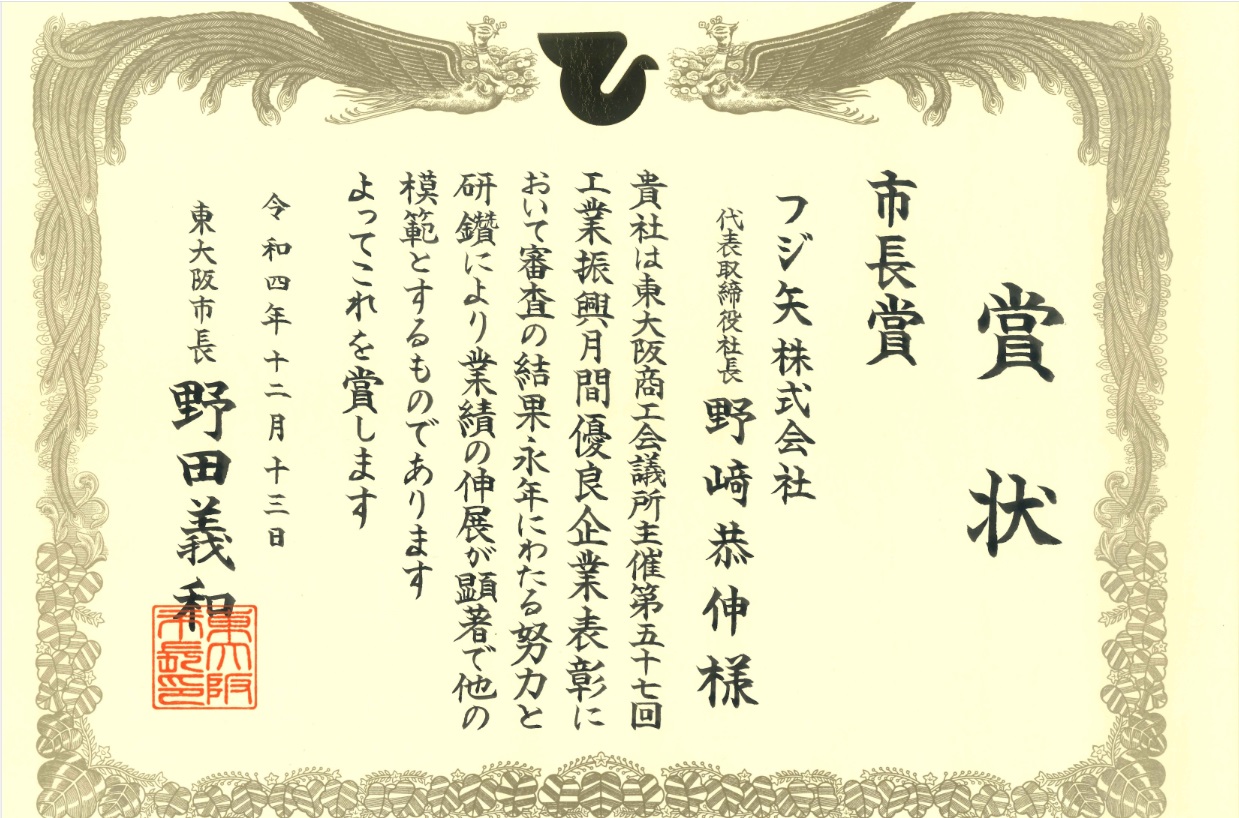 賞状
市長賞
フジ矢株式会社
代表取締役社長 野﨑恭伸様
貴社は東大阪商工会議所主催第五十七回
工業振興月間優良企業表彰に
おいて審査の結果永年にわたる努力と
研鑽により業績の伸展が顕著で他の
模範とするものであります
よってこれを賞します
令和四年十二月十三日
東大阪市長 野田義和
東大阪
市長印